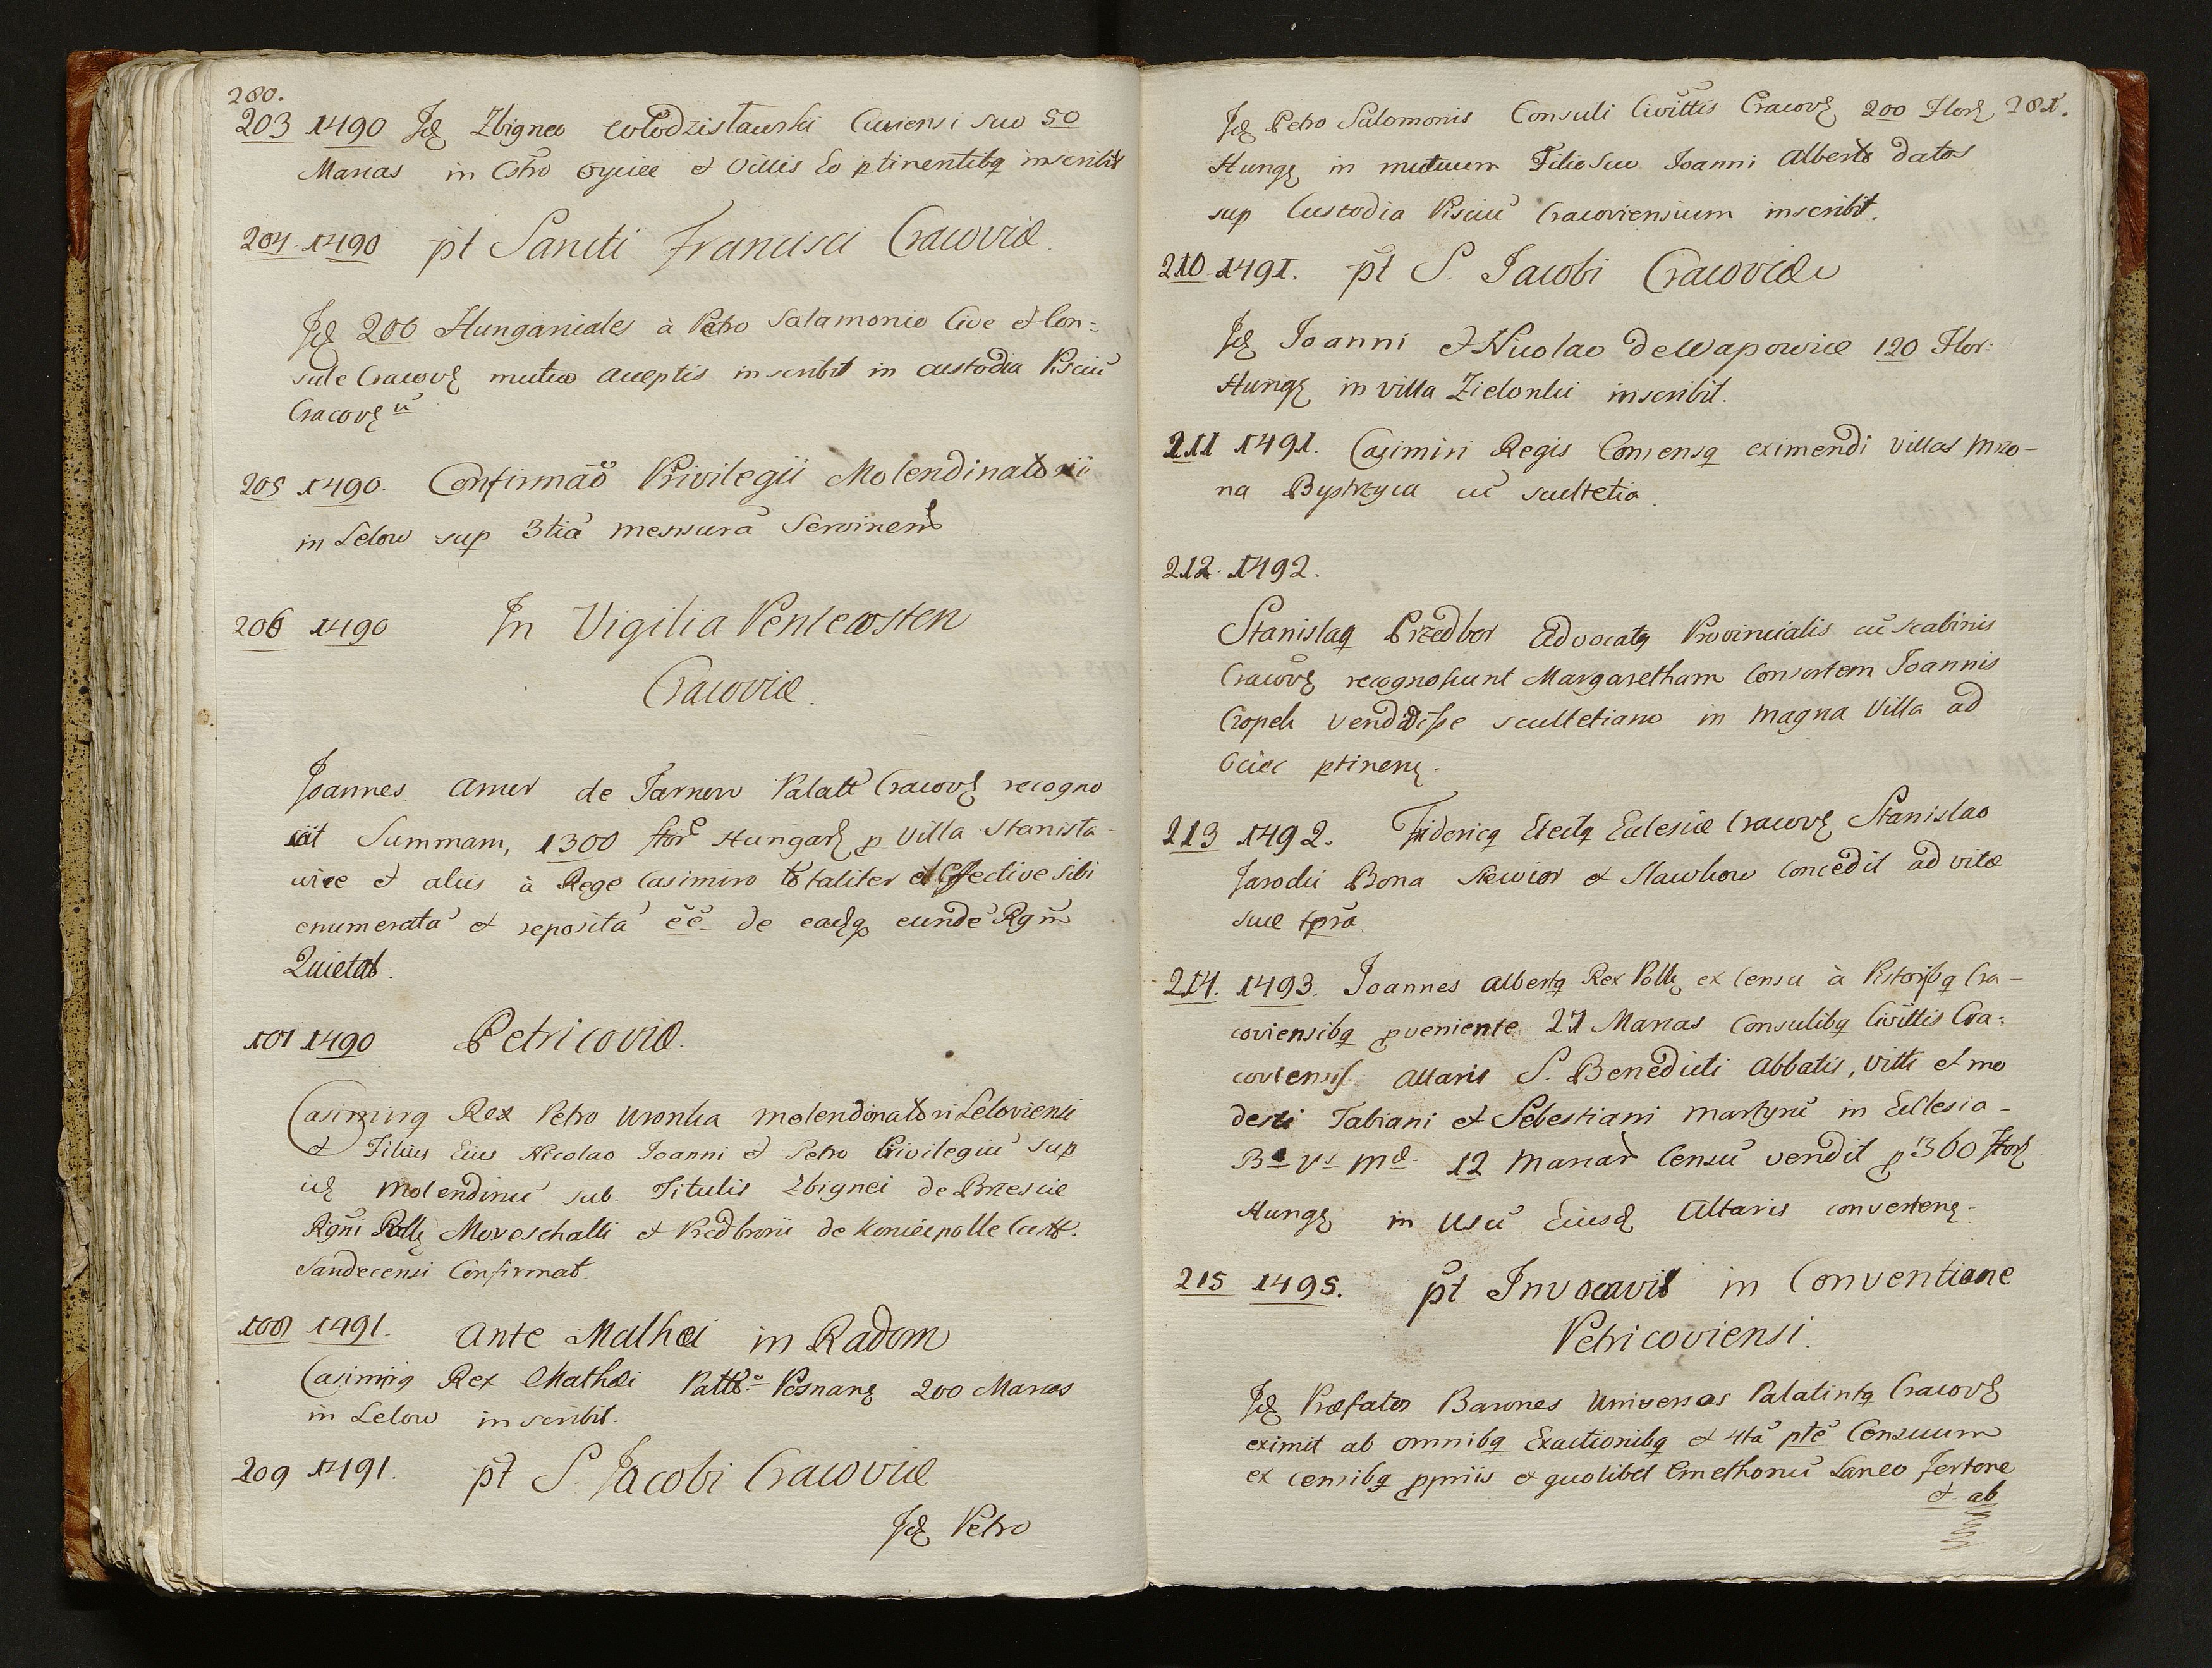 280.
203 1490 Jd Zbigneo Wlodzislawski Curiensi suo 50
Marcas in Cstro Oyciec et Villis Eo ptinentibq inscribit
204. 1490 pt Sancti Francisci Cracoviæ.
Jdꝫ 200 Hungariales à Petro Salamonio Cive et Con=
sule Cracovꝫ mutuo acceptis inscribit in custodia Pisciū
Cracovꝫ ū
205 1490. Confirmaõ Privilegii Molendinatorii
in Lelow sup 3tiā mensurā
206 1490 In Vigilia Pentecosten
Cracoviæ.
Joannes Amer de Tarnow Palatt Cracovꝫ recogno
scit Summam, 1300 flor Hungarꝫ p Villa Stanisla-
wice et aliis à Rege Casimiro totaliter et Effective Sibi
enumeratā et repositā ēē de eadꝫ eundē Rgm̄
Quietat.
107 1490 Petricoviæ.
Casimirq Rex Petro Wronka molendinatori Leloviensi
et Filiis Eius Nicolao Joanni et Petro Privilegiū sup
idꝫ Molendinū sub. Titulis Zbignei de Brzescie
Rgni Pollꝫ Moreschalli et Predborii de Koniecpolle Castt.
Sandecensi Confirmat.
108 1491. Ante Mathei in Radom
Casimirq Rex Mathæi Pattno Posnanꝫ 200 Marcas
in Lelow inscribit.
209 1491. pt S. Jacobi Cracoviæ
Jdꝫ Petro
Jdꝫ Petro Salomonis Consuli Civittis Cracovꝫ 200 Florꝫ 281.
Hungꝫ in mutuum Filio Suo Joanni Alberto datos
sup Custodia Pisciū Cracoviensium inscribit.
210 1491. pt S. Jacobi Cracoviæ
Jdꝫ Joanni et Nicolao de Wapowice 120 Flor:
Hungꝫ in villa Zielonki inscribit.
211 1491. Casimiri Regis Consensq eximendi villas Mro-
na Bystrzyca cū scultetia.
212. 1492.
Stanislaq Przedbor Advocatq Provincialis cū scabinis
Cracovꝫ recognoscunt Margaretham Consortem Joannis
Cropek vendidisse scultetiam in magna Villa ad
Ociec ptinenꝫ.
213 1492. Fridericq Electq Eclesiæ Cracovꝫ Stanislao
Jarocki Bona Siewior et Slawkow concedit ad vitæ
suæ tpra.
214. 1493. Joannes Albertq Rex Pollꝫ ex Censu à Pistoribq Cra-
coviensibq pveniente 27 Marcas Consulibq Civittis Cra:
coviensis Altaris S. Benedicti Abbatis, Vitti et mo
desti Fabiani et Sebestiani Martyrū in Ecclesia-
Bæ Vs Mæ. 12 Marcar Censū vendit p 360 florꝫ
Hungꝫ in Usū Eiusdꝫ Altaris convertenꝫ-
215 1495. pt Invocavit in Conventione
Petricoviensi.
Jdꝫ Præfatos Barones Universos Palatintq Cracovꝫ
eximit ab omnibq Exactionibq et 4tā ptē Censuum
ex censibq ppriis et quolibet Cmethonū Laneo fertone
et ab